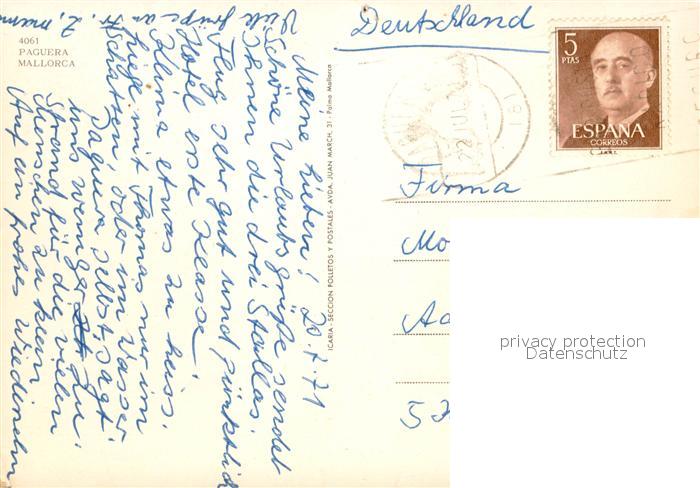 4061
PAGUERA
MALLORCA
Meine Lieben! 20.7.71
Schöne Urlaubsgrüße sendet
Ihnen die drei Stallas.
Flug sehr gut und pünktlich
Hotel erste Klasse,
Klima etwas zu heiss.
liege mit Thomas nur im
Schatten oder im Wasser
Paguera selbst sagt
uns weniger zu,
Strand für die vielen
Menschen zu klein
Auf ein frohes Wiedersehn
Viele Grüße an Fr. Z,
ICARIA - SECCION FOLLETOS Y POSTALES - AVDA. JUAN MARCH, 31 - Palma Mallorca
Deutschland
5
PTAS
ESPAÑA
CORREOS
Firma
Mo
Ad
53
privacy protection
Datenschutz